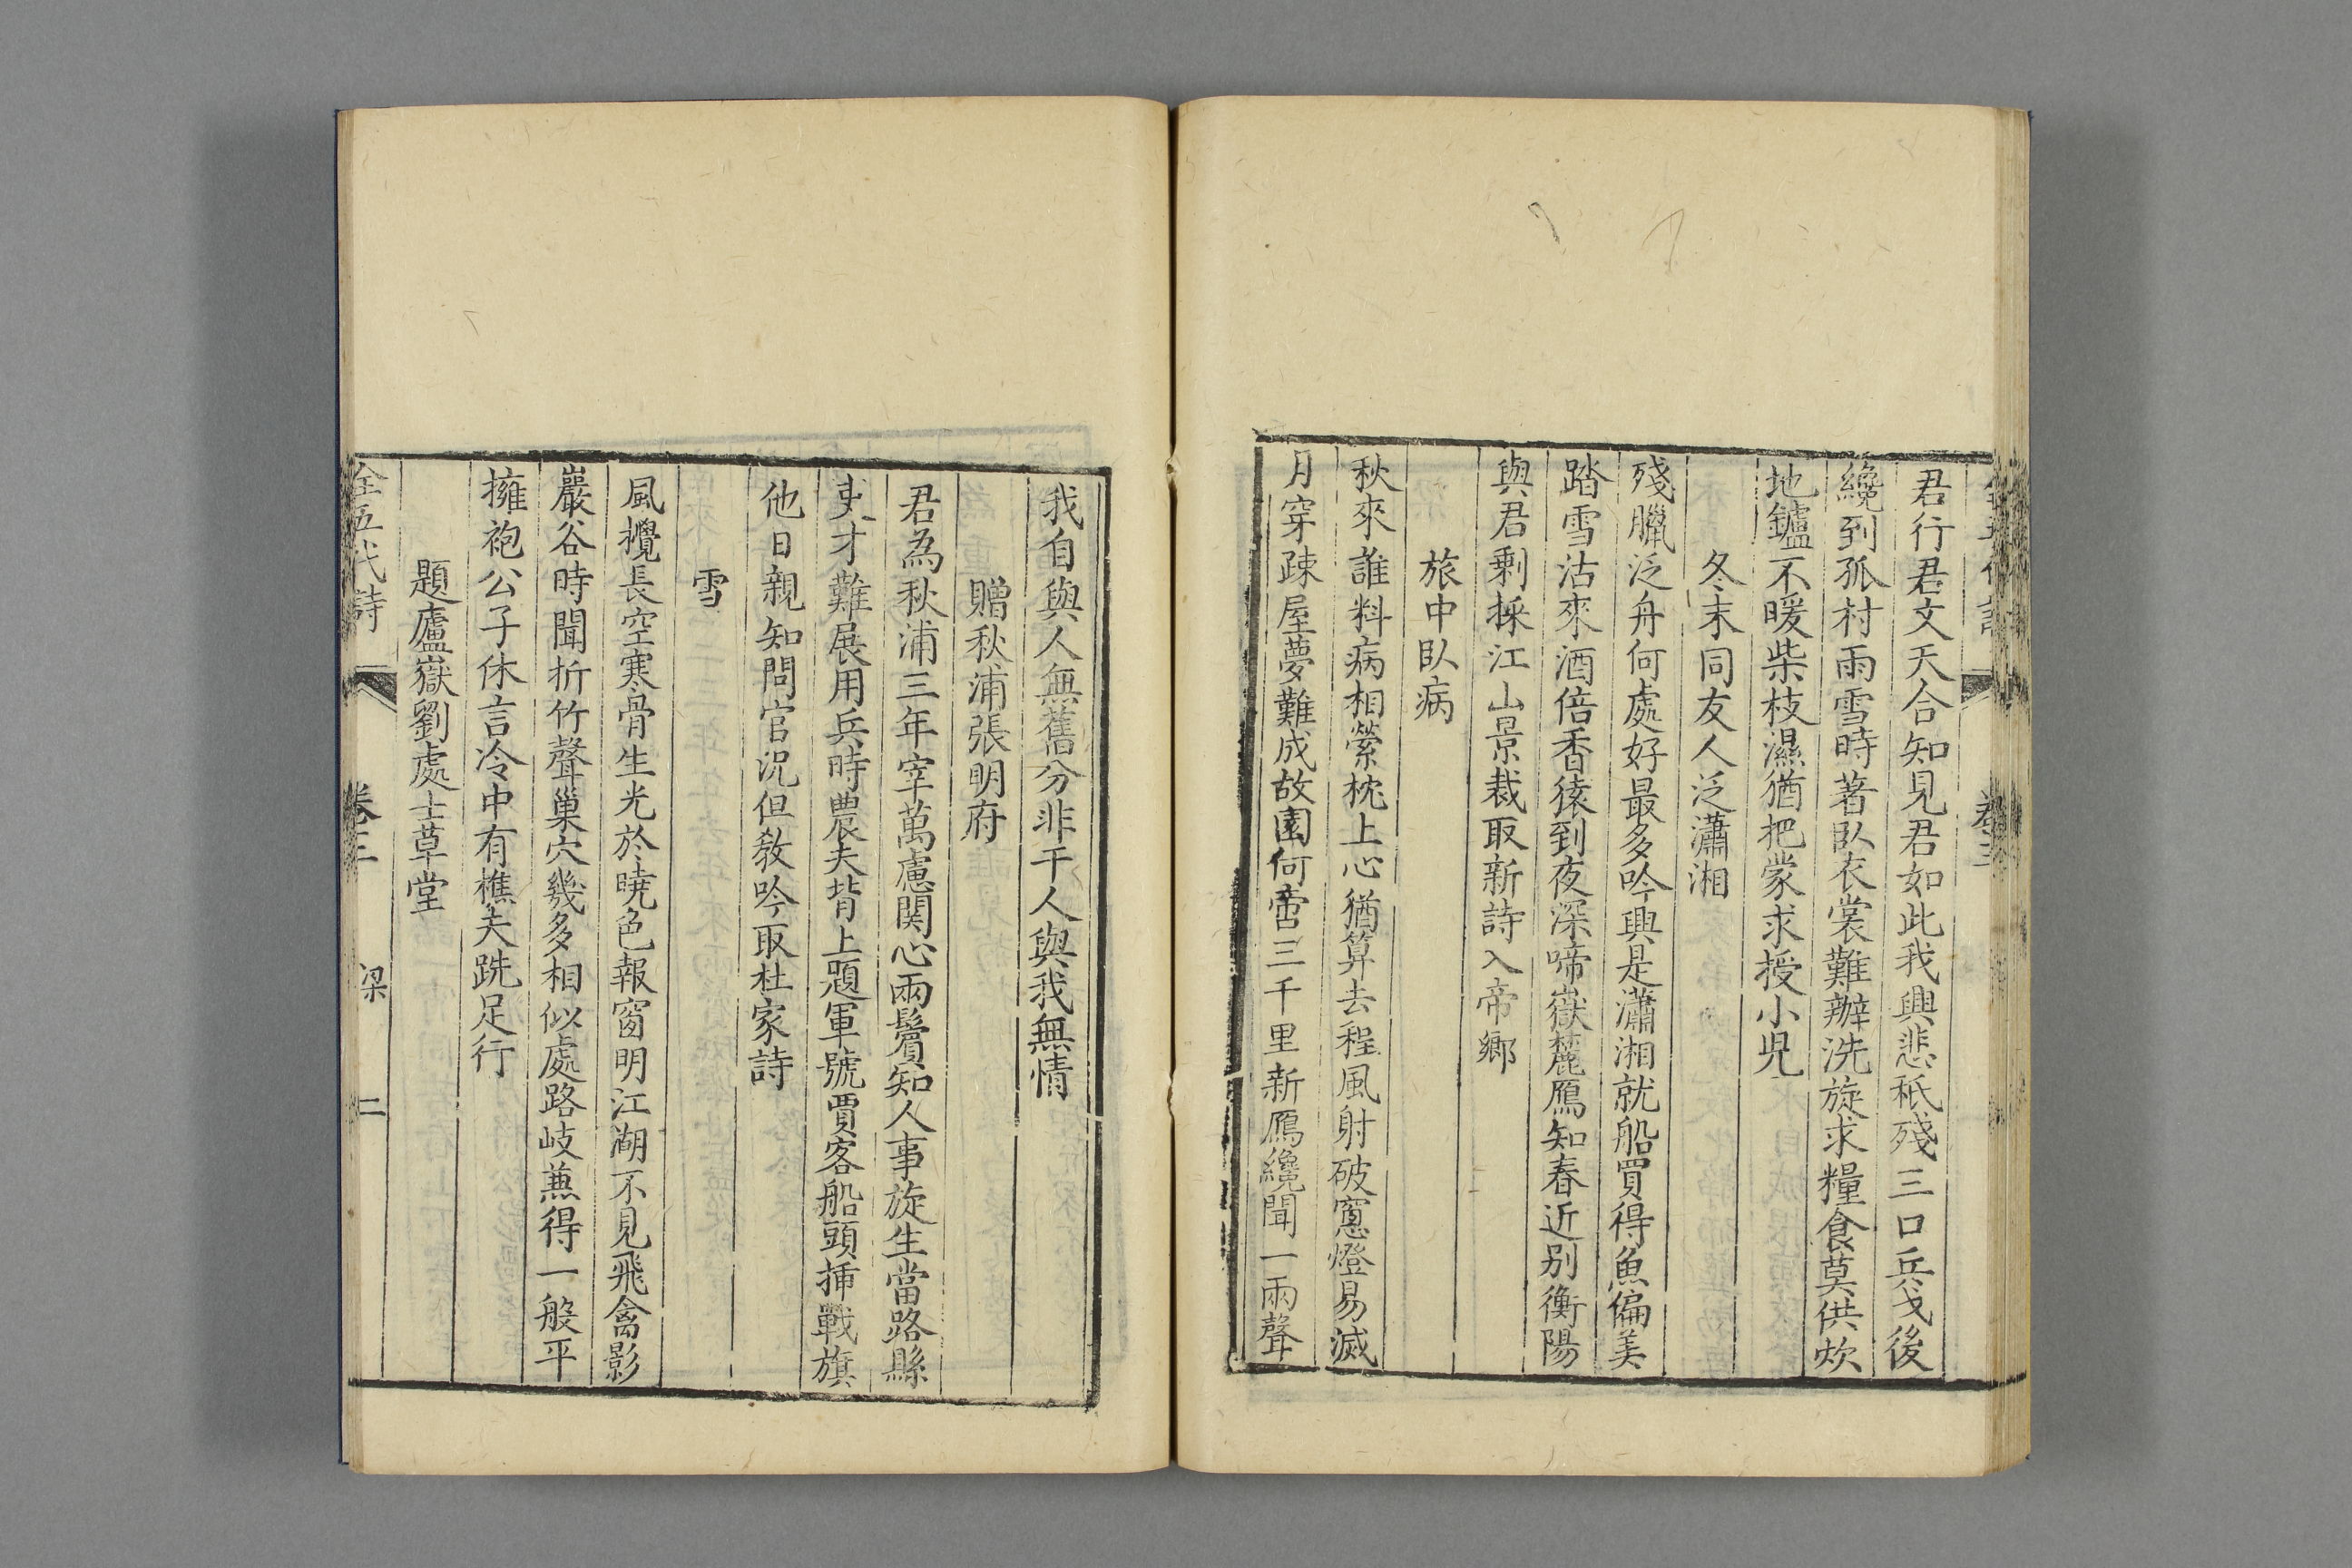 君行君文天合知見君如此我興悲秖殘三口兵戈後
纔到孤村雨雪時著臥衣裳難辦洗旋求糧食莫供炊
地鑪不暖柴枝濕猶把蒙求授小児
冬末同友人泛瀟湘
殘臘泛舟何處好最多吟興是瀟湘就船買得魚偏美
踏雪沽來酒倍香猿到夜深啼嶽麓鴈知春近别衡陽
與君剩採江山景裁取新詩入帝鄉
旅中臥病
秋來誰料病相縈枕上心猶算去程風射破窻燈易滅
月穿疎屋夢難成故園何啻三千里新鴈纔聞一兩聲
我自與人無舊分非干人與我無情
贈秋浦張明府
君為秋浦三年宰萬慮関心兩鬢知人事旋生當路縣
吏才難展用兵時農夫背上題軍號賈客船頭揷戰旗
他日親知問官況但敎吟取杜家詩
雪
風攪長空寒骨生光於曉色報窗明江湖不見飛禽影
巖谷時聞折竹聲巢穴幾多相似處路岐兼得一般平
擁袍公子休言冷中有樵夫跣足行
題廬嶽劉處士草堂
全五代詩 卷三 梁 二